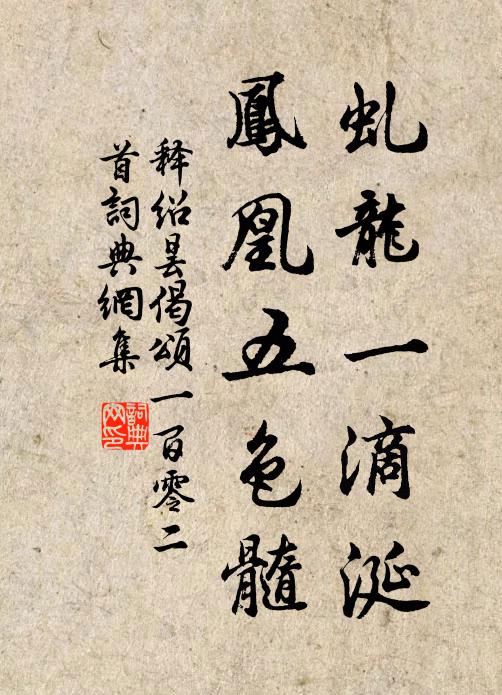 虬龍一滴涎
鳳凰五色髓
釋紹曇偈頌一百零二
首詞典網集
詞典
网印